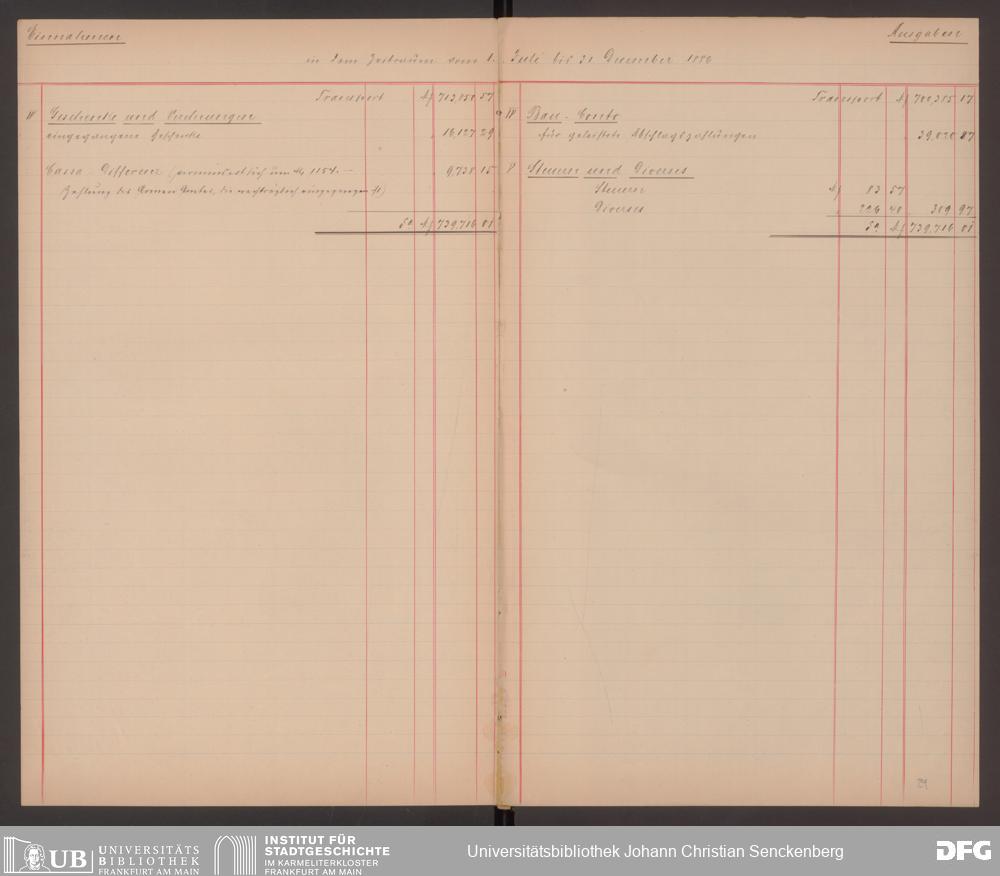 Einnahmen
Ausgaben
in dem Zeitraum vom 1. Juli bis 31 December 1886
Transport M 713,850 57
IV Geschenke und Ordnungen
eingegangene Geschenke " 16,127 29
Cassa-Differenz (vermindert sich um M 1154.–
Zahlung des Armen Amtes, die nachträglich eingegangen ist) " 9,738 15
Sa M 739,716 01
Transport M 700,385 17
IV Bau-Conto
für geleistete Abschlagszahlungen " 39,020 87
V Steuern und Diverses
Steuern M 83 57
Diverses " 226 40 " 309 97
Sa M 739,716 01
UB UNIVERSITÄTS
BIBLIOTHEK
FRANKFURT AM MAIN
INSTITUT FÜR
STADTGESCHICHTE
IM KARMELITERKLOSTER
FRANKFURT AM MAIN
Universitätsbibliothek Johann Christian Senckenberg
DFG